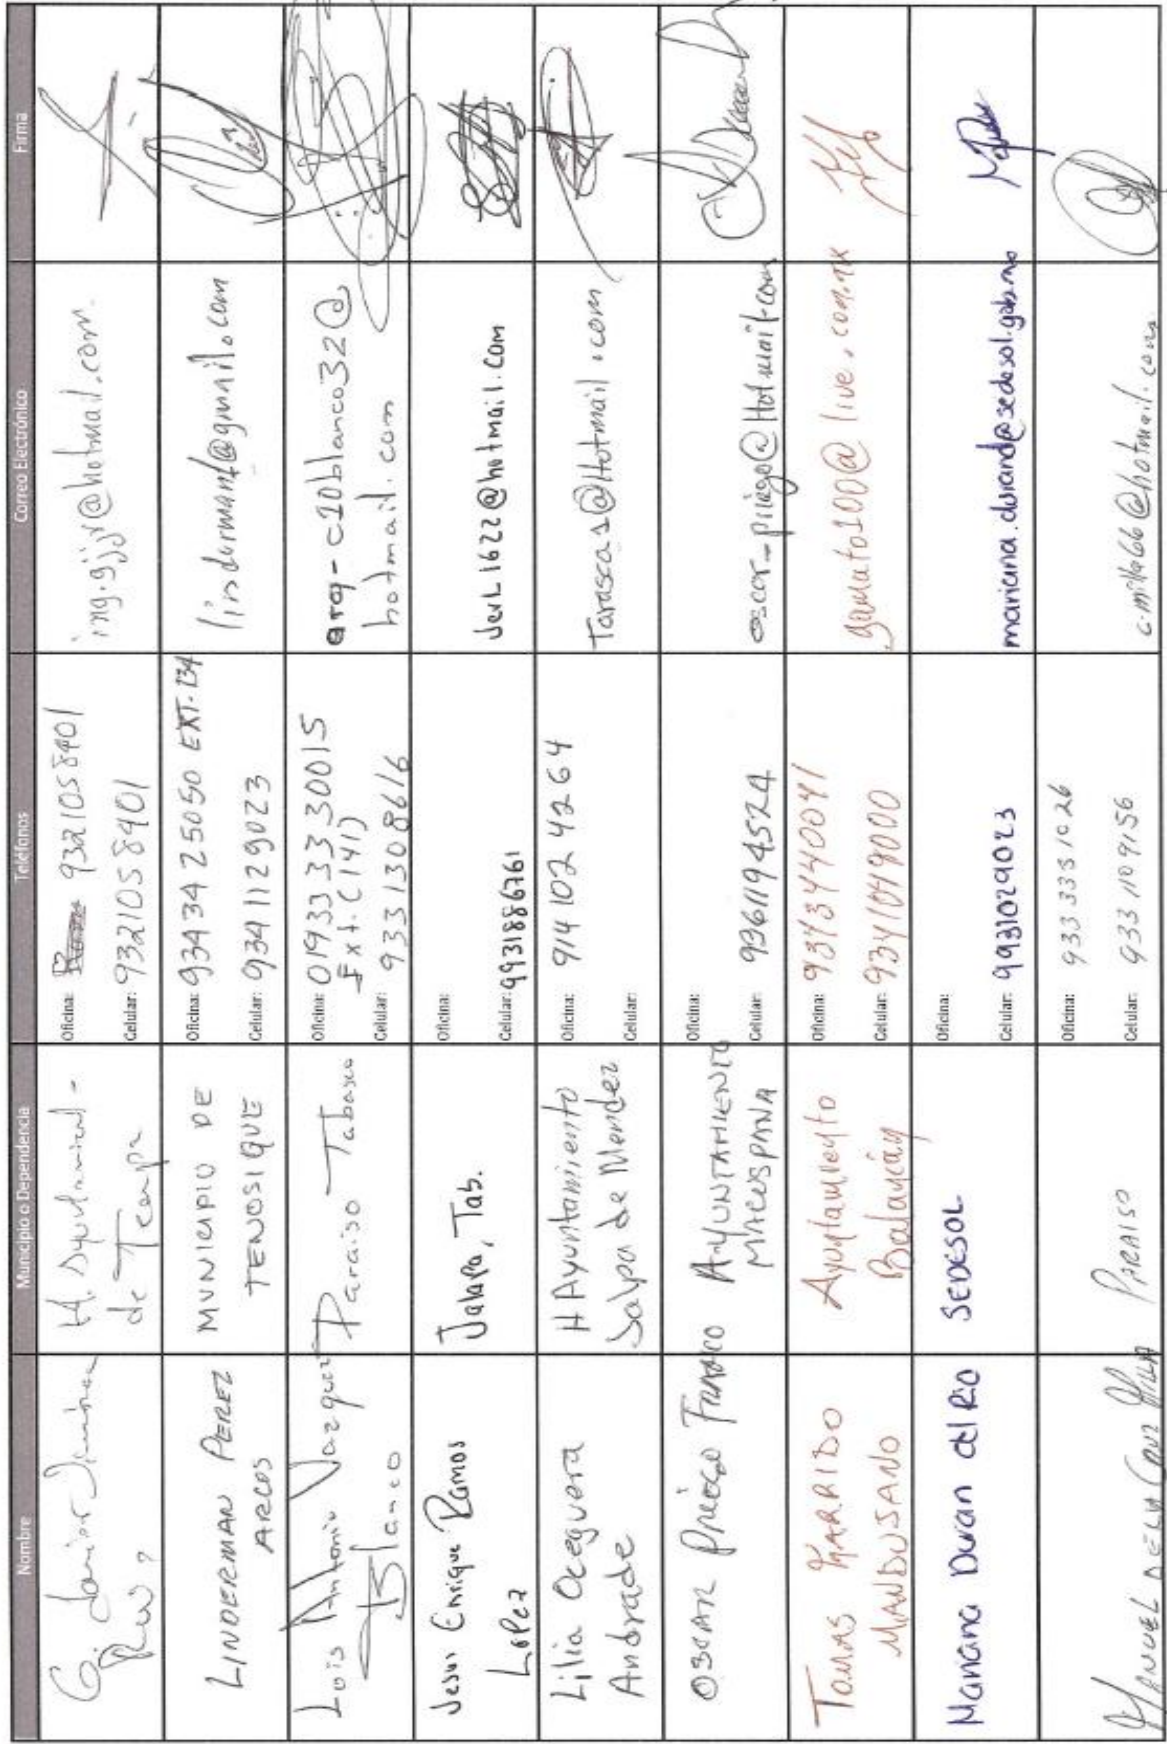 Nombre
Municipio o Dependencia
Teléfonos
Correo Electrónico
Firma
G. Javier Jiménez
Ruiz
H. Ayuntamient-
de Teapa
Oficina: 9321058401
Celular: 9321058401
ing.gjjr@hotmail.com.
LINDERMAN PEREZ
ARCOS
MUNICIPIO DE
TENOSIQUE
Oficina: 934 34 25050 EXT. 134
Celular: 934 112 9023
lindermant@gmail.com
Luis Antonio Vazquez
Blanco
Paraiso Tabasco
Oficina: 01933 33 30015
Ext. (141)
Celular: 933 130 8616
arq-c10blanco32@
hotmail.com
Jesus Enrique Ramos
Lopez
Jalapa, Tab.
Oficina:
Celular: 9931886761
Jerl1622@hotmail.com
Lilia Oceguera
Andrade
H Ayuntamiento
Jalpa de Mendez
Oficina: 914 102 4264
Celular:
Tarasca1@Hotmail.com
OSCAR Priego FRANCO
AYUNTAMIENTO
MACUSPANA
Oficina:
Celular: 9361194524
oscar_priego@Hotmail.com
TOMAS GARRIDO
MANDUJANO
Ayuntamiento
Balancán
Oficina: 9343440041
Celular: 9341049000
gamato100@live.com.mx
Mariana Duran del Rio
SEDESOL
Oficina:
Celular: 9931029023
mariana.durand@sedesol.gob.mx
MANUEL DE LA CRUZ MILLA
PARAISO
Oficina: 933 333 10 26
Celular: 933 110 9156
c.milla66@hotmail.com